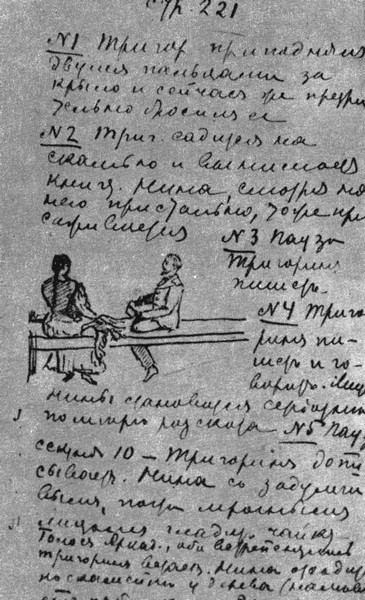 стр. 221
№1 Тригор приподнял
двумя пальцами за
крыло и сейчас же презри
тельно бросил ее
№2 Триг. садится на
скамью и вынимает
книгу. Нина, смотря на
него пристально, тоже при
саживается
№3 Пауза
Тригорин
пишет.
№4 Триго
рин пи-
шет и го-
ворит. Лицо
Нины становится
по мере рассказа №5 Пауза
секунд 10 — Тригорин допи
сывает. Нина с задумчи
вым,
лицом гладит чайку
Голоса Аркад.,
Тригорин встает. Нина
по скамейке у дерева